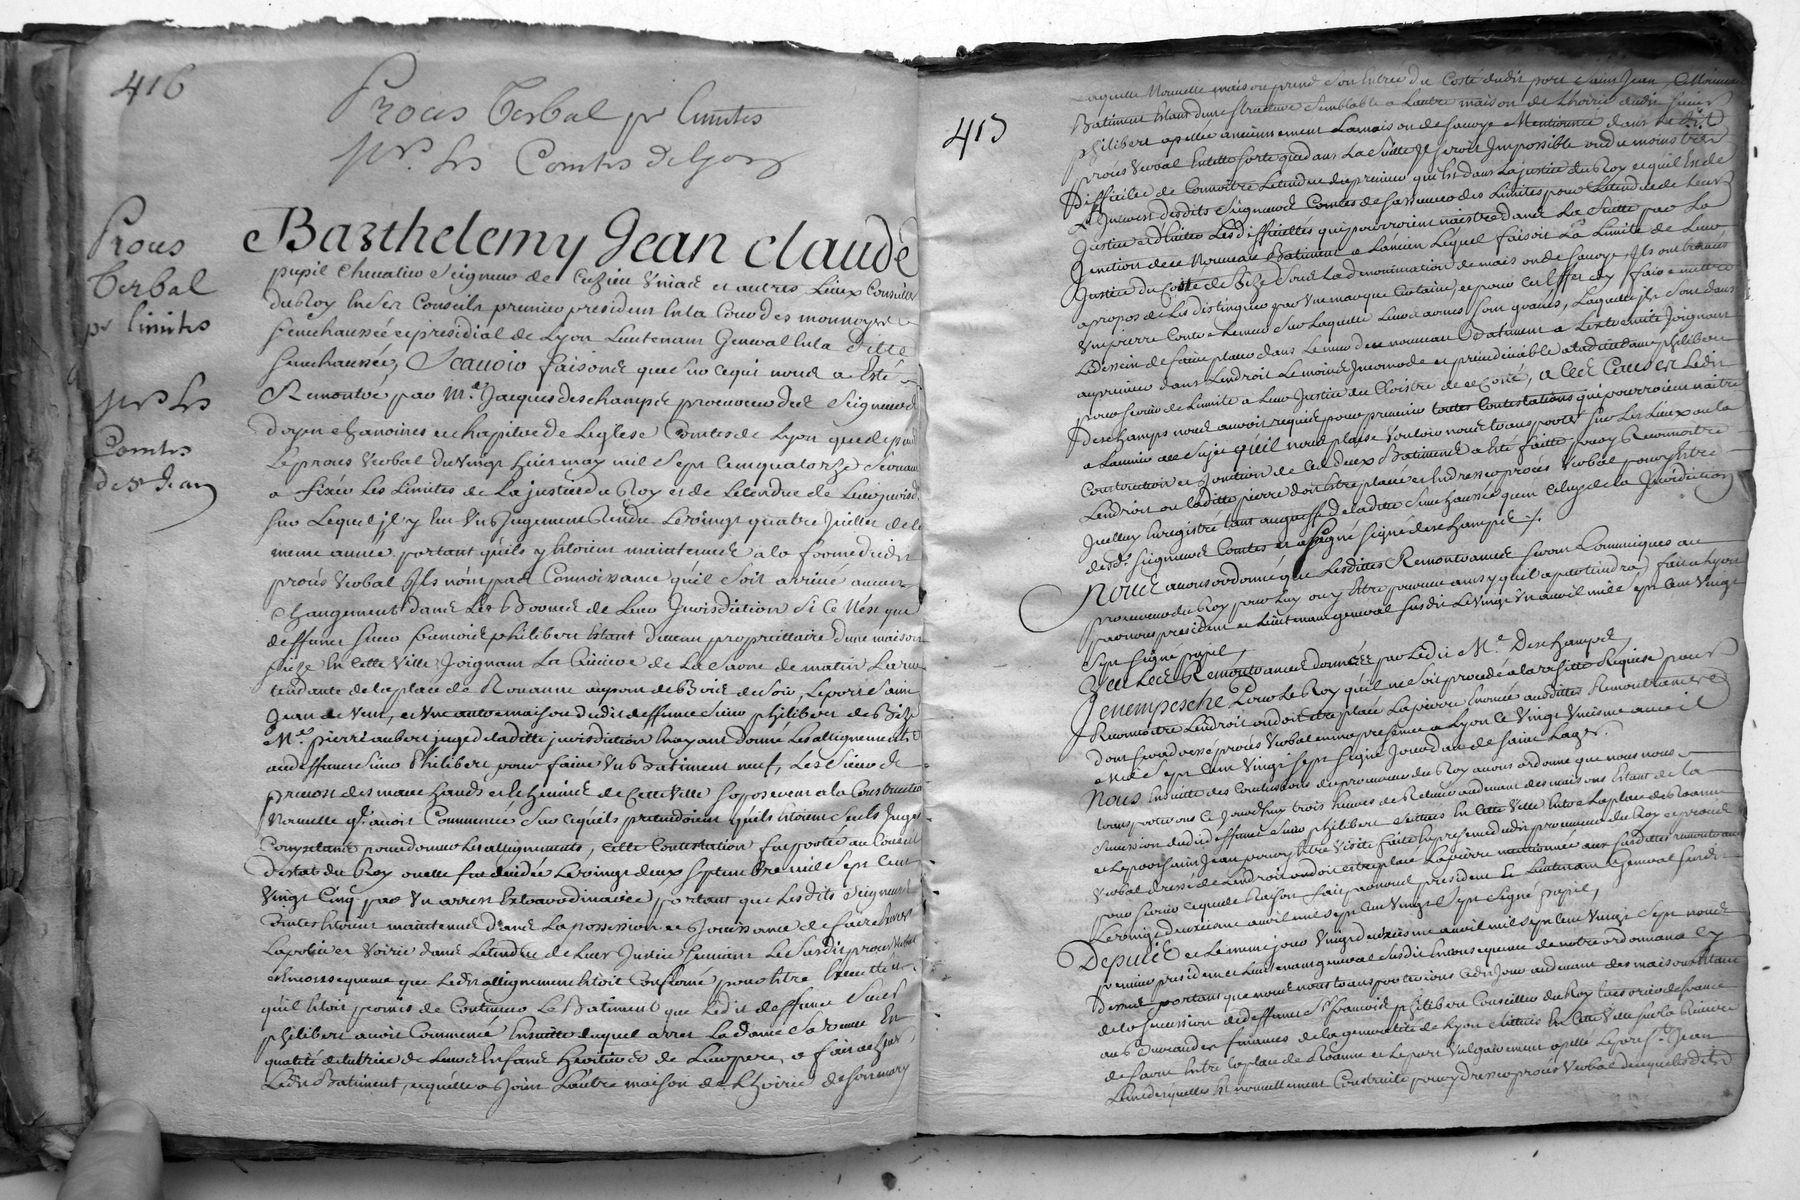 416
Procés Verbal pr limites
pr. les Comtes de Lyon
Procés
Verbal
pr limites
pr les
Comtes
de St Jean
Barthelemy Jean Claude
pupil Chevalier Seigneur de Cuzieu Unias et autres Lieux Conseiller
du Roy en Ses Conseils premier president en la Cour des monnoyes
Senechaussée et presidial de Lyon Lieutenant General en la ditte
Senechaussée, Scavoir faisons que sur ce qui nous a Esté
Remontré par Me. Jacques deschamps procureur des Seigneurs
doyen chanoines et chapitre de Leglise Comtes de Lyon que depuis
Le procés Verbal du Vingt huit may mil Sept Cent quatorze Servant
a fixer Les Limites de La justice du Roy et de Letendue de Leur jurisd
sur Lequel jl y Eut Un Jugement Rendu Le vingt quatre Juillet de la
meme année portant quils y Etoient maintenus a la forme dudit
procés Verbal Jls nont pas Connoissance quil Soit arrivé aucun
Changement dans Les Bornes de Leur Jurisdiction Si Ce Nest que
deffunt Sieur françois philibert Etant devenu proprietaire dune maison
Size En Cette Ville Joignant La Riviere de La Saone de matin La rue
tendante de la place de Rouanne au port du Bois de Soir, Le port Saint
Jean de Vent, et Une autre maison dudit deffunt Sieur philibert de Bize
Me. pierre aubert juge de laditte jurisdiction Luy ayant donné Les allignements
audeffunt Sieur Philibert pour faire Un Batiment neuf, Les Sieurs
prevost des marchands et Echevins de Cette Ville Soposerent a la Construction
Nouvelle ql. avoit Commencé Sur Ce quils pretendoient quils Etoient Seuls Juges
Competans pour donner Les allignements, Cette Contestation fut portée au Conseil
destat du Roy ou elle fut decidée Le vingt deux Septembre mil Sept Cent
Vingt Cinq par Un arrest Extraordinaire portant que Lesdits Seigneurs
Comtes Etoient maintenus dans La possession et Jouissance de faire Exercer
La police et Voirie dans Letendue de Leur Justice Suivant Le Susdit procés Verbal
en Consequence que Ledit allignement Etoit Confirmé pour être Executé et
quil Etoit permis de Continuer Le Batiment que Ledit deffunt Sieur
philibert avoit Commencé Ensuitte duquel arrest La dame Sa Veuve En
qualité de tutrice de Leurs Enfans Heritiers de Leur pere, a fait achever
Ledit Batiment, et quelle a Joint Lautre maison de Lhoirie de Son mary
415
Laquelle Nouvelle maison prend Son Entrée du Costé dudit port Saint Jean
Batiment Etant dune Structure Semblable a Lautre maison de Lhoirie dudit Sieur
philibert apellée anciennement La maison de Savoye Mentionnée dans Le dit
procés Verbal En telle Sorte que dans La Suitte Jl Seroit Impossible ou du moins tres
Difficille de Connoitre Letendue du premier qui Est dans La justice du Roy et quil Est de
Linterest desdits Seigneurs Comtes de Sassurer des Limites pour Letendue de Leur
Justice et deviter Les difficultés qui pourroient naistre dans La Suitte par La
Jonction de ce Nouveau Batiment a Lancien Lequel faisoit La Limite de Leur
Justice du Costé de Bize Sous La denomination de maison de Savoye Jls ont trouvé
apropos de Les distinguer par Une marque Certaine, et pour Cet Effet dy faire mettre
Une pierre Contre Le mur Sur Laquelle Leurs armes Sont gravées, Laquelle jls Sont dans
Le dessein de faire placer dans Le mur de ce nouveau Batiment a Lextremité Joignant
au premier dans Lendroit Le moins Jncomode et prejudiciable a Laditte dame philibert
pour Servir de Limite a Leur Justice du Cloistre de ce Costé, a Ces Causes Ledit
Deschamps nous auroit requis pour prevenir toutes Contestations qui pourroient naitre
a Lavenir a ce Sujet quil nous plaise Vouloir nous transporter Sur Les Lieux ou la
Construction et Jonction de Ces deux Batiments a été faitte pour y Reconnoitre
Lendroit ou laditte pierre doit Estre placée et En dresser procés Verbal pour y Etre
Jcelluy Enregistré tant au greffe de laditte Senechaussée quen Celuy de la Jurisdiction
desds. Seigneurs Comtes et a Signé Signé deschamps /.
Nous avons ordonné que Lesdittes Remontrances Seront Communiquées au
procureur du Roy pour Luy ouy Etre pourvu ainsy quil apartiendra fait a Lyon
par nous president et Lieutenant general Susdit Le Vingt Un avril mil Sept Cent Vingt
Sept Signé pupil,
Veu Les Remontrances données par Ledit Me. Deschamps,
Je nempesche Pour Le Roy quil ne Soit procedé a la visitte Requise pour
Reconnoitre Lendroit ou doit etre placé La pierre Enoncée ausdittes Remontrances
dont Sera dressé procés Verbal en ma presence a Lyon Ce Vingt Unieme avril
mil Sept Cent Vingt Sept Signé Jourdan de Saint Lager.
Nous En suitte des Conclusions du procureur du Roy avons ordonné que nous nous
transporterons Ce Jourdhuy trois heures de Relevée au devant des maisons Etant de la
Sucession dudit deffunt Sieur philibert Scituées En Cette Ville Entre La place de Roanne
et Le port Saint Jean pour y Etre Visite faite En presence dudit procureur du Roy et procés
Verbal dressé de Lendroit ou doit estre placé La pierre mentionnée aux Susdittes remontrances
pour Servir ce que de Raison fait par nous president et Lieutenant General Susdit
Le vingt deuxieme avril mil Sept Cent Vingt Sept Signé pupil,
Depuis et Le meme jour Vingt deuxieme avril mil Sept Cent Vingt Sept nous
premier president et Lieutenant general Susdit En Consequence de notre ordonnance Cy
Dessus portant que nous nous transporterions Cedit Jour au devant des maisons Etant
de la Sucession dudit deffunt Sr. françois philibert Conseiller du Roy tresorier de france
au Bureau des finances de la generalité de Lyon Scituées En Cette Ville Sur la Riviere
de Saone Entre la place de Roanne et Le port Vulgairement apellé Le port St. Jean
Lune desquelles Est nouvellement Construite pour y dresser procés Verbal de